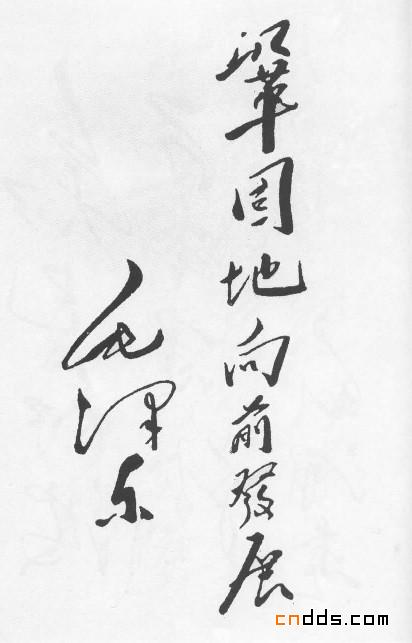 鞏固地向前發展
毛澤东
cndds.com